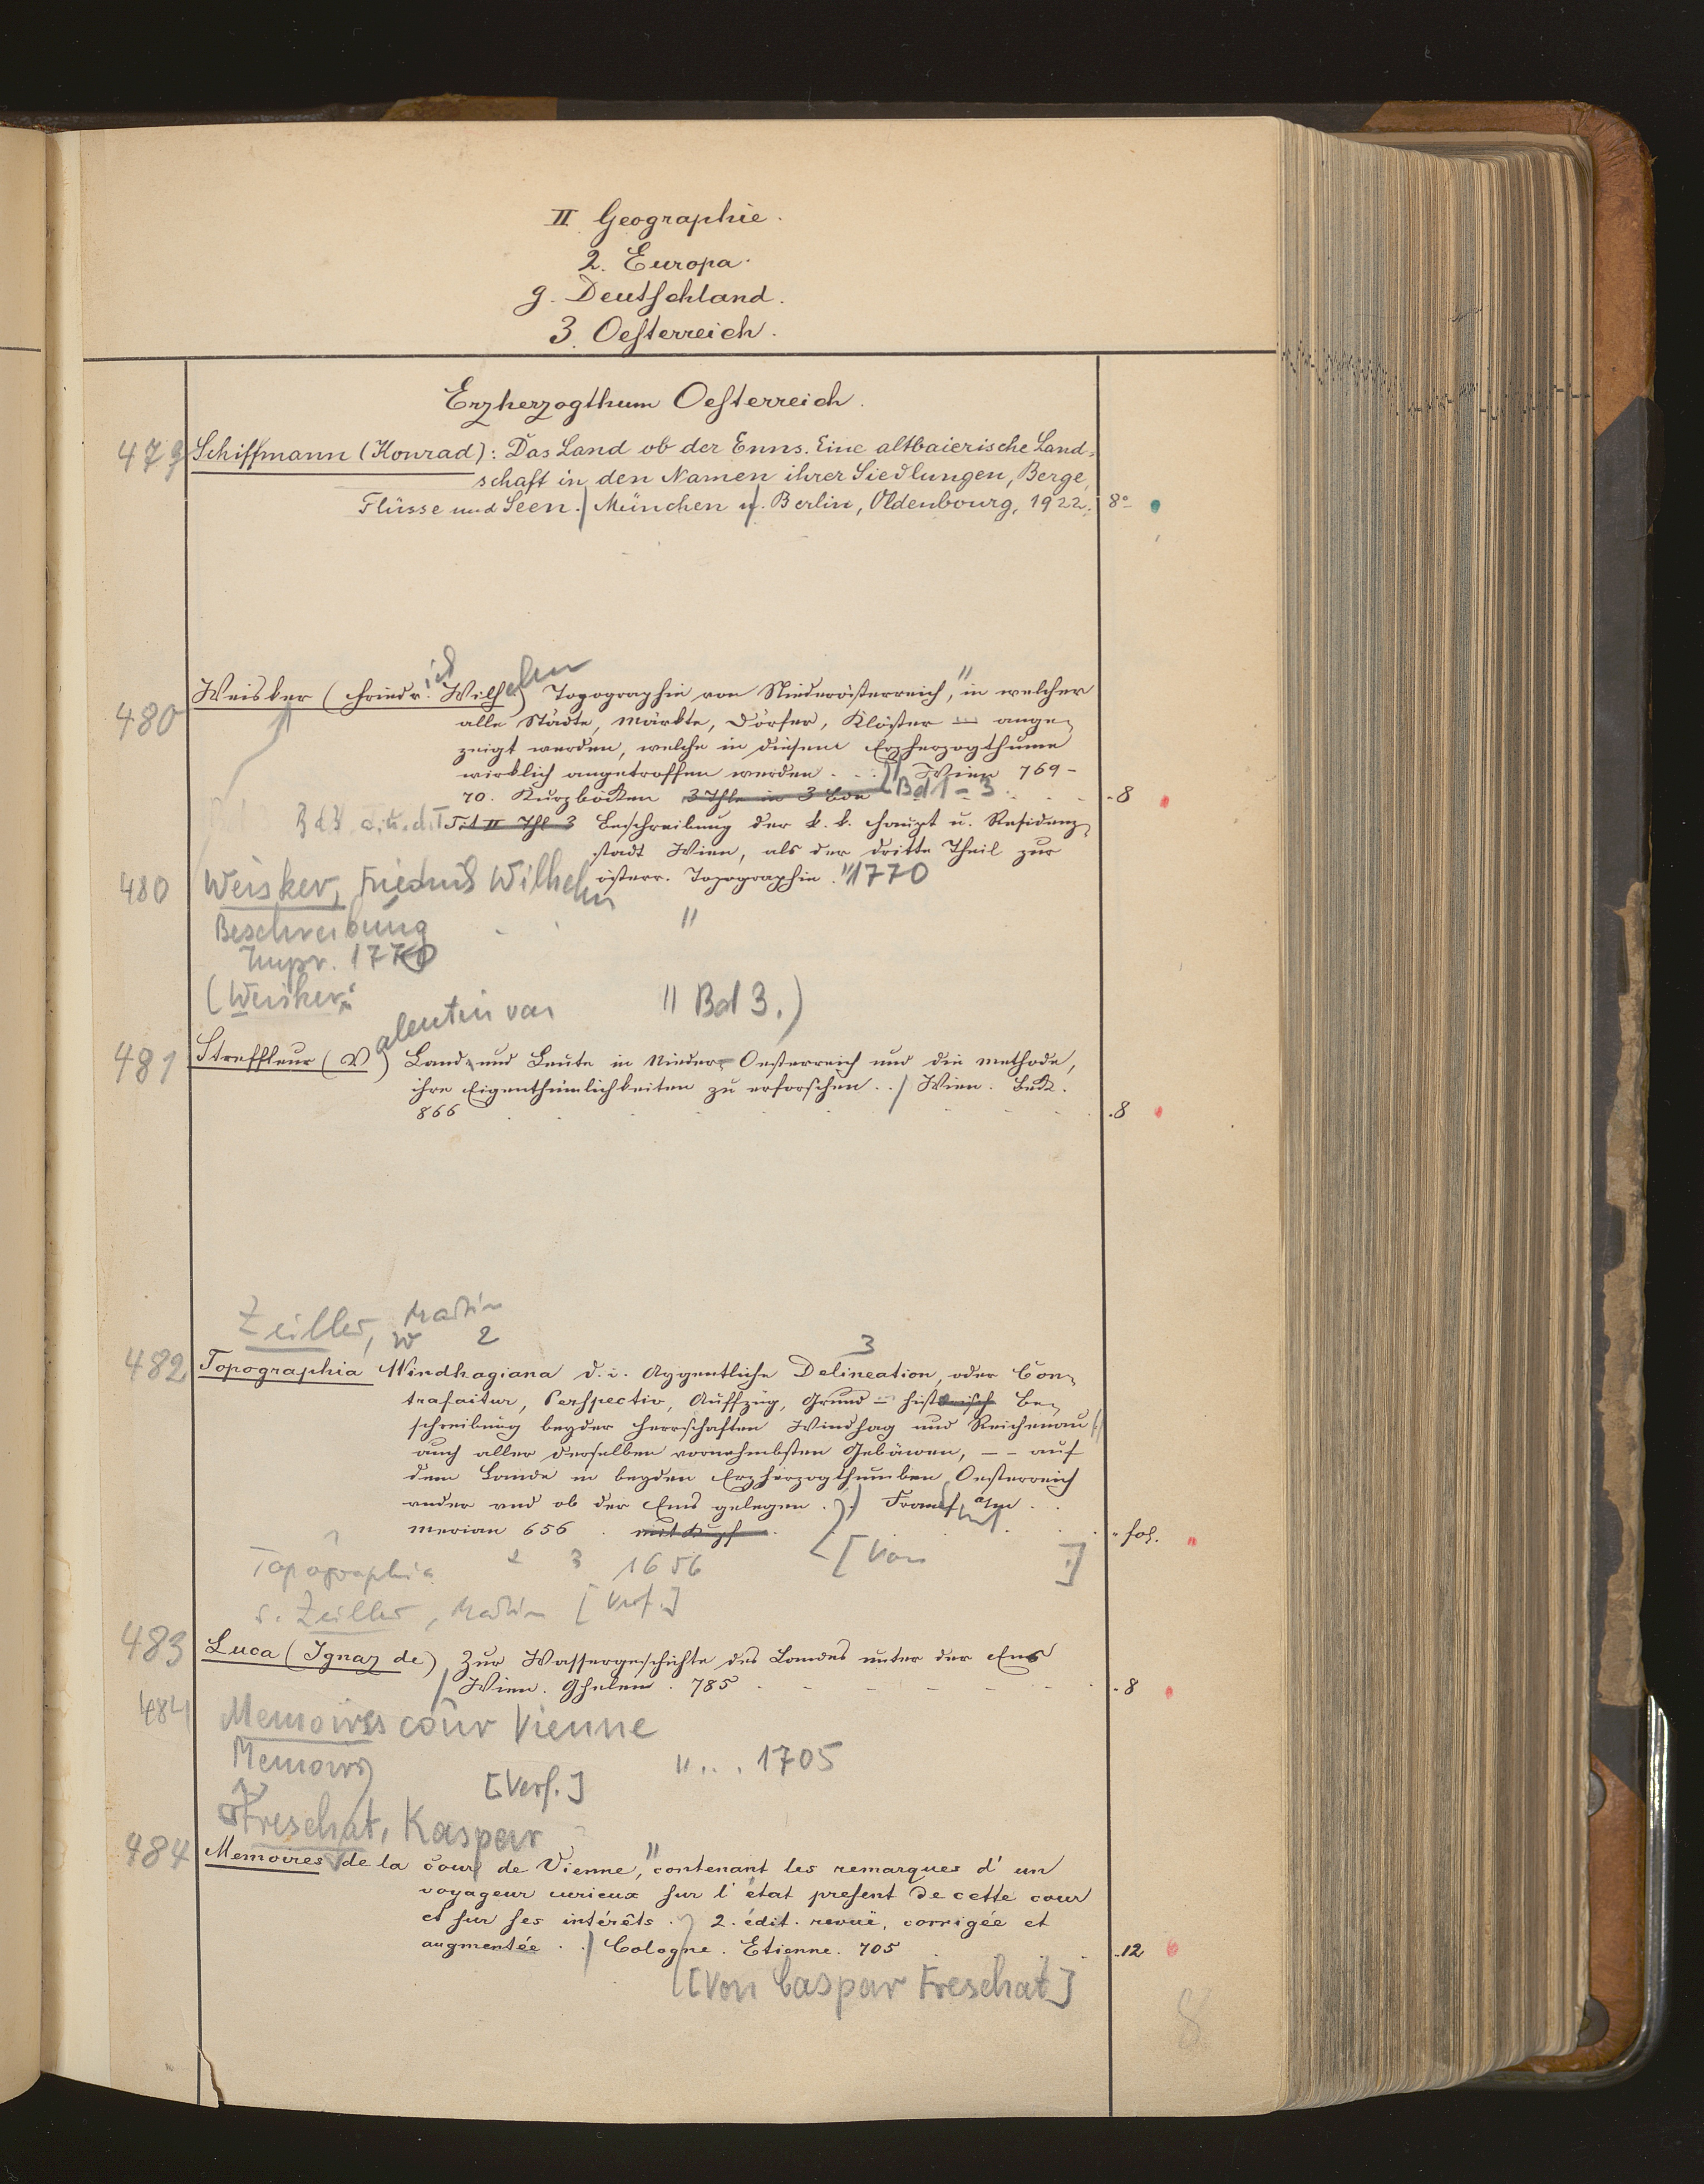 II Geographie.
2. Europa.
g. Deutschland.
3. Oesterreich.
Erzherzogthum Oesterreich.
479 Schiffmann (Konrad): Das Land ob der Enns. Eine altbaierische Land-
schaft in den Namen ihrer Siedlungen, Berge,
Flüsse und Seen. / München u. Berlin, Oldenbourg, 1922. 8°
480 Weisker (Friedrich Wilhelm) Topographie von Niederösterreich, " in welcher
alle Städte, Märkte, Dörfer, Klöster — ange-
zeigt werden, welche in diesem Erzherzogthume
wirklich angetroffen werden . . . // Wien 769-
70. Kurzböcken 3 Thle in 3 Bde Bd 1-3 8
Bd 3 Tit II Thl 3 Beschreibung der k. k. Haupt u. Residenz-
stadt Wien, als der dritte Theil zur
österr. Topographie. " 1770
480 Weisker, Friedrich Wilhelm
Beschreibung "
Impr. 1770
(Weisker: " Bd 3.)
481 Streffleur (Valentin von) Land und Leute in Nieder-Oesterreich und die Methode,
ihre Eigenthümlichkeiten zu erforschen . . / Wien. Beck.
866 8
Zeiller, Martin
W 2 3
482 Topographia Windhagiana d. i. Aygentliche Delineation, oder Con-
trafaitur, Perspectiv, Auffzüg, Grund — historisch Be-
schreibung beyder Herrschaften Windhag und Reichenau
auch aller derselben vornehmbsten Gebäwen, — — auf
dem Lande in beyden Erzherzogthumben Oesterreich
under und ob der Ens gelegen . . / Frankfurt a/m . .
Merian 656 . mit Kupf fol.
[Von ]
Topographia 2 3 1656
s. Zeiller, Martin [Verf.]
483 Luca (Ignaz de) Zur Wassergeschichte des Landes unter der Ens
/ Wien. Ghelen. 785 8
484 Memoires cour Vienne
Memoires " . . . 1705
[Verf.]
Freschat, Kaspar
484 Memoires de la cour de Vienne, " contenant les remarques d'un
voyageur curieux sur l'état present de cette cour
et sur ses intérêts . 2. édit. revuë, corrigée et
augmentée . . / Cologne. Etienne. 705 12
[Von Caspar Freschat]
8